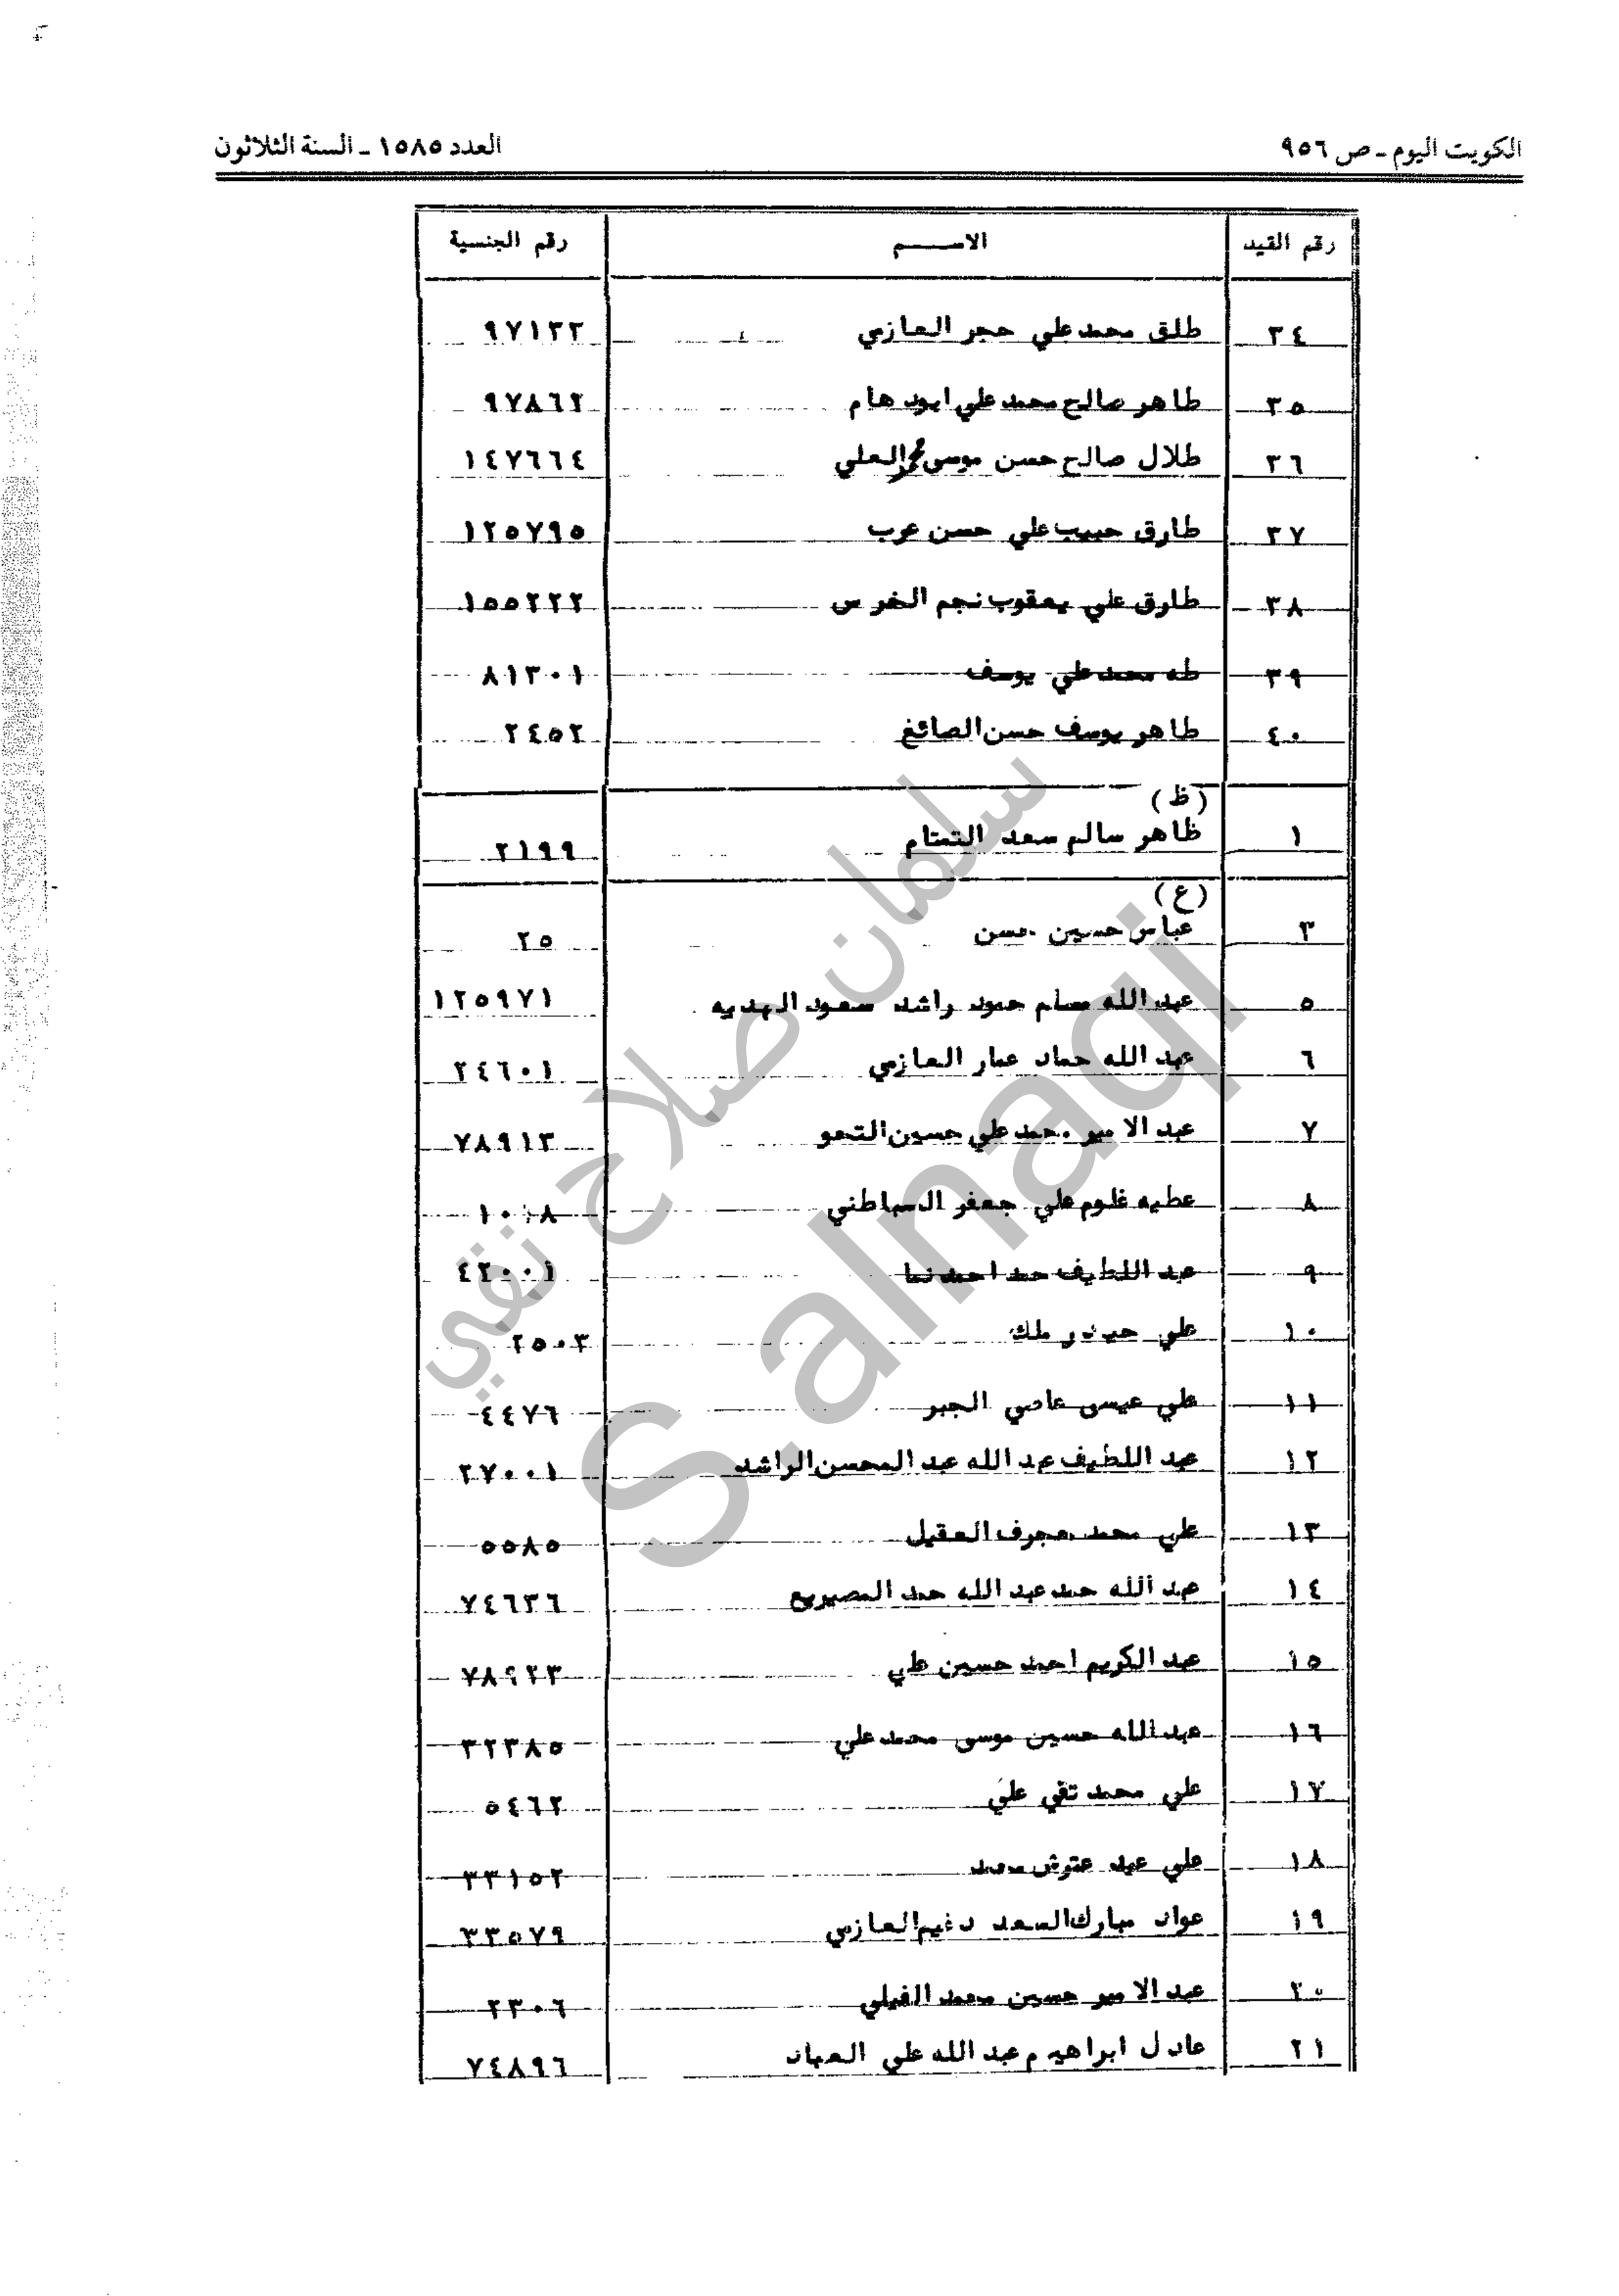 الكويت اليوم ـ ص ٩٥٦
العدد ١٥٨٥ ـ السنة الثلاثون
رقم القيد الاســـم رقم الجنسية
٣٤ طلق محمد علي حجر العازمي ٩٧١٣٢
٣٥ طاهر صالح محمد علي ابود هام ٩٧٨٦٢
٣٦ طلال صالح حسن موسى محمد العلي ١٤٧٦٦٤
٣٧ طارق حبيب علي حسن عرب ١٢٥٧٩٥
٣٨ طارق علي يعقوب نجم الخرس ١٥٥٢٢٢
٣٩ طه محمد علي يوسف ٨١٣٠١
٤٠ طاهر يوسف حسن الصائغ ٢٤٥٢
(ظ)
١ ظاهر سالم سعد التمتام ٢١٩٩
(ع)
٣ عباس حسين حسن ٢٥
٥ عبد الله مسلم حمود راشد سعود الهديه ١٢٥٩٧١
٦ عبد الله حماد عمار العازمي ٢٤٦٠١
٧ عبد الامير محمد علي حسين ٧٨٩١٣
٨ عطيه غلوم علي جعفر ١٠١٨
٩ عبد اللطيف حمد احمد ٤٢٠٠١
١٠ علي حيدر ملك ٢٥٠٣
١١ علي عيسى عاصي الجبر ٤٤٧٦
١٢ عبد اللطيف عبد الله عبد المحسن الراشد ٢٧٠٠١
١٣ علي محمد معجرف العقيل ٥٥٨٥
١٤ عبد الله حمد عبد الله حمد المصيريع ٧٤٦٣٦
١٥ عبد الكريم احمد حسين علي ٧٨٩٢٣
١٦ عبد الله حسين موسى محمد علي ٣٢٣٨٥
١٧ علي محمد تقي علي ٥٤٦٢
١٨ علي عبد عتوش محمد ٣٣١٥٢
١٩ عواد مبارك السعد دغيم العازمي ٣٣٥٧٩
٢٠ عبد الامير حسين محمد الفيلي ٢٣٠٦
٢١ عادل ابراهيم عبد الله علي العباد ٧٤٨٩٦
سلمان صلاح نقي
S.alnaqi